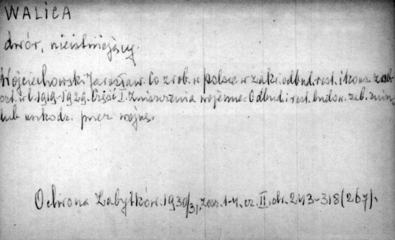 WALICA
dwór, nieistniejący.
Wojciechowski Jarosław. Co zrob. w Polsce w zakr. odbud. rest. i kons. zab.
od r. 1919-1929. Część I. Zniszczenia wojenne. Odbud. i rest. budow. zab. zniszcz.
lub uszkodz. przez wojnę.
Ochrona Zabytków. 1930/31, zesz. 1-4. cz. II, str. 243-318 (267).